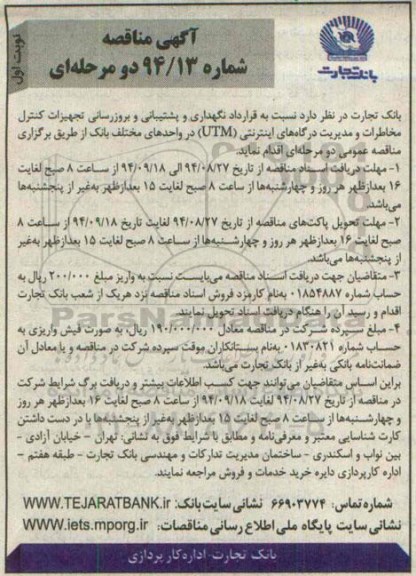 آگهی مناقصه
شماره ۹۴/۱۳ دو مرحله‌ای
نوبت اول
بانک تجارت
بانک تجارت در نظر دارد نسبت به قرارداد نگهداری و پشتیبانی و بروزرسانی تجهیزات کنترل
مخاطرات و مدیریت درگاه‌های اینترنتی (UTM) در واحدهای مختلف بانک از طریق برگزاری
مناقصه عمومی دو مرحله‌ای اقدام نماید.
۱- مهلت دریافت اسناد مناقصه از تاریخ ۹۴/۰۸/۲۷ الی ۹۴/۰۹/۱۸ از ساعت ۸ صبح لغایت
۱۶ بعدازظهر هر روز و چهارشنبه‌ها از ساعت ۸ صبح لغایت ۱۵ بعدازظهر به‌غیر از پنجشنبه‌ها
می‌باشد.
۲- مهلت تحویل پاکت‌های مناقصه از تاریخ ۹۴/۰۸/۲۷ لغایت تاریخ ۹۴/۰۹/۱۸ از ساعت ۸
صبح لغایت ۱۶ بعدازظهر هر روز و چهارشنبه‌ها از ساعت ۸ صبح لغایت ۱۵ بعدازظهر به‌غیر
از پنجشنبه‌ها می‌باشد.
۳- متقاضیان جهت دریافت اسناد مناقصه می‌بایست نسبت به واریز مبلغ ۲۰۰/۰۰۰ ریال به
حساب شماره ۰۱۸۵۴۸۸۷ به‌نام کارمزد فروش اسناد مناقصه نزد هریک از شعب بانک تجارت
اقدام و رسید آن را هنگام دریافت اسناد تحویل نمایند.
۴- مبلغ سپرده شرکت در مناقصه معادل ۱۹۰/۰۰۰/۰۰۰ ریال، به صورت فیش واریزی به
حساب شماره ۰۱۸۳۰۸۲۱ به‌نام بستانکاران موقت سپرده شرکت در مناقصه و یا معادل آن
ضمانت‌نامه بانکی به‌غیر از بانک تجارت می‌باشد.
براین اساس متقاضیان می‌توانند جهت کسب اطلاعات بیشتر و دریافت برگ شرایط شرکت
در مناقصه از تاریخ ۹۴/۰۸/۲۷ لغایت ۹۴/۰۹/۱۸ از ساعت ۸ صبح لغایت ۱۶ بعدازظهر هر روز
و چهارشنبه‌ها از ساعت ۸ صبح لغایت ۱۵ بعدازظهر به‌غیر از پنجشنبه‌ها با در دست داشتن
کارت شناسایی معتبر و معرفی‌نامه و مطابق با شرایط فوق به نشانی: تهران - خیابان آزادی -
بین نواب و اسکندری - ساختمان مدیریت تدارکات و مهندسی بانک تجارت - طبقه هفتم -
اداره کارپردازی دایره خرید خدمات و فروش مراجعه نمایند.
شماره تماس: ۶۶۹۰۳۷۷۴ نشانی سایت بانک: WWW.TEJARATBANK.ir
نشانی سایت پایگاه ملی اطلاع رسانی مناقصات: WWW.iets.mporg.ir
بانک تجارت-اداره کارپردازی